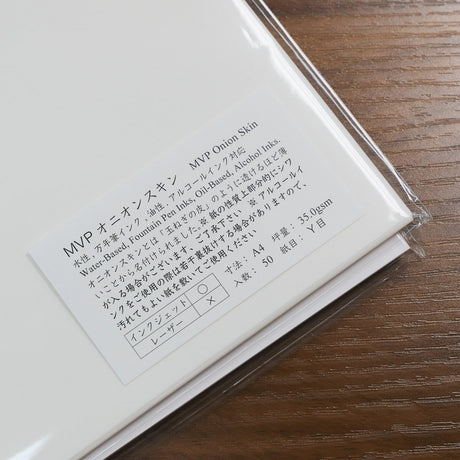 MVP オニオンスキン MVP Onion Skin
水性、万年筆インク、油性、アルコールインク対応
Water-Based, Fountain Pen Inks, Oil-Based, Alcohol Inks.
オニオンスキンとは、「玉ねぎの皮」のように透けるほど薄
いことから名付けられました。※ 紙の性質上部分的にシワ
が入る場合がございます。ご了承下さい。※ アルコールイ
ンクをご使用の際は若干裏抜けする場合がありますので、
汚れてもよい紙を敷いてご使用ください
インクジェット ○
レーザー ×
寸法: A4 坪量: 35.0gsm
入数: 50 紙目: Y目